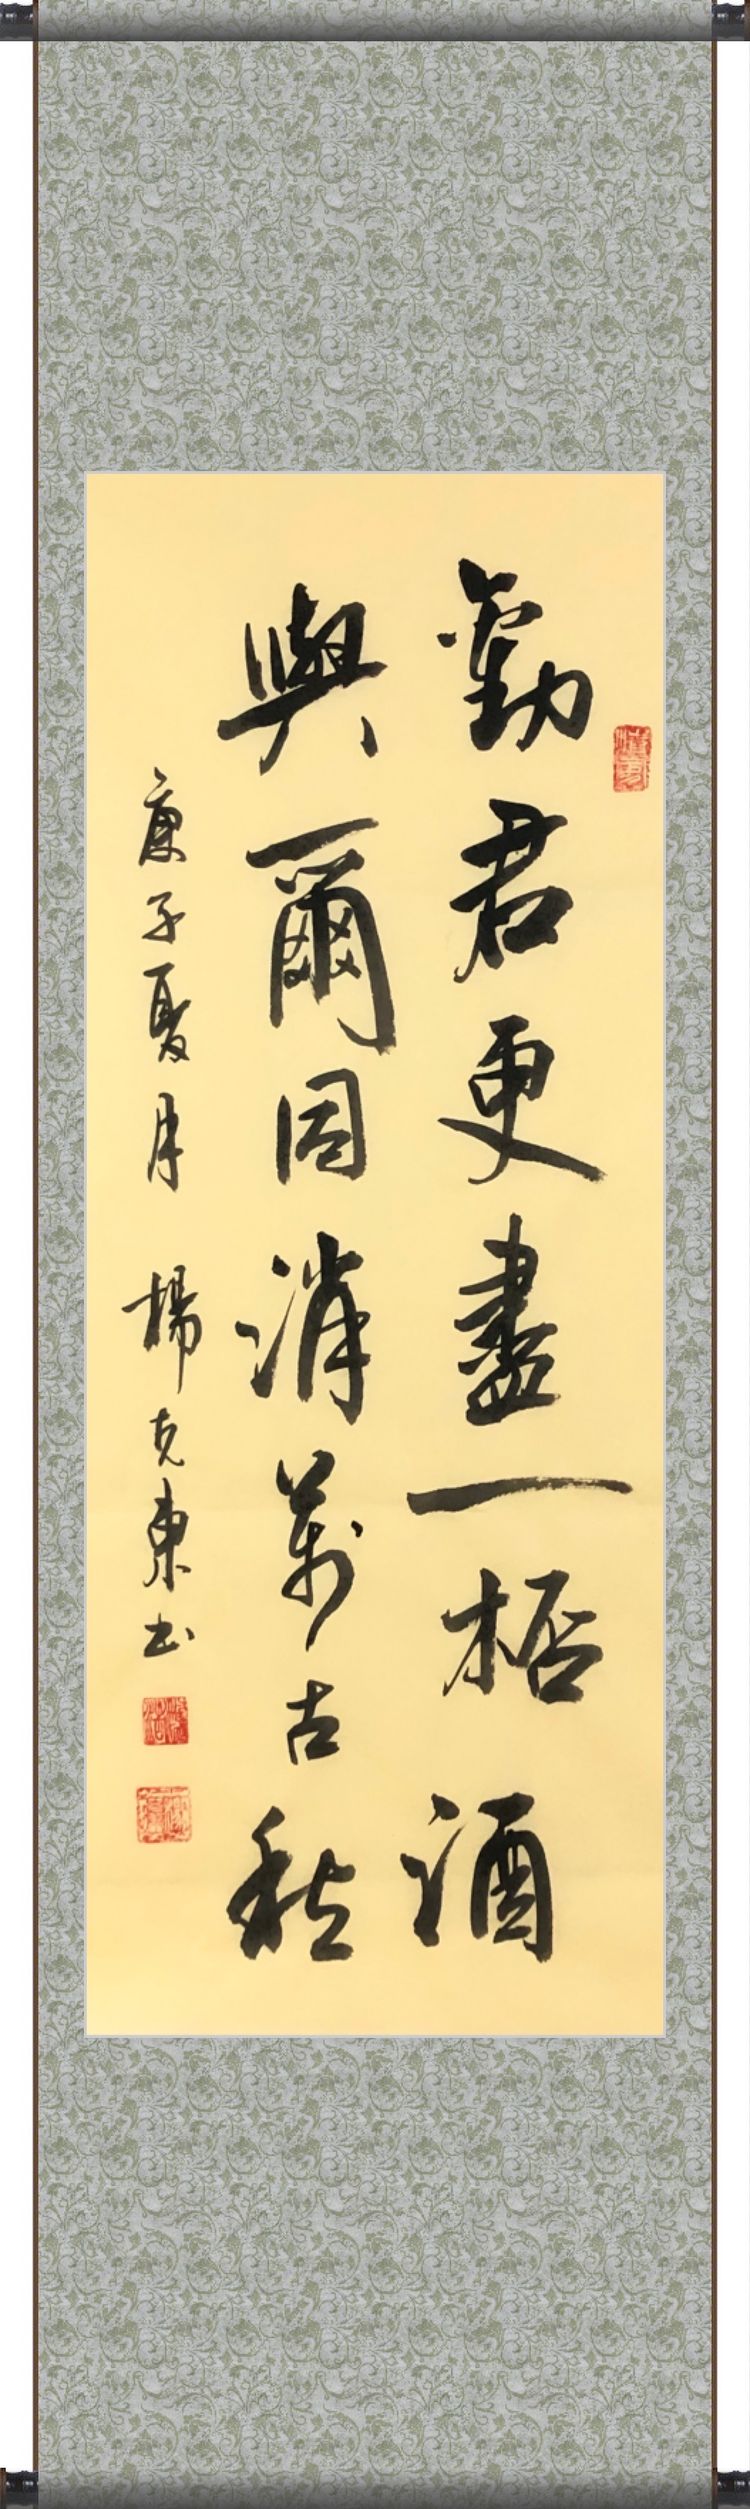 勸君更盡一桮酒
與爾同消萬古愁
庚子夏月 楊克東书